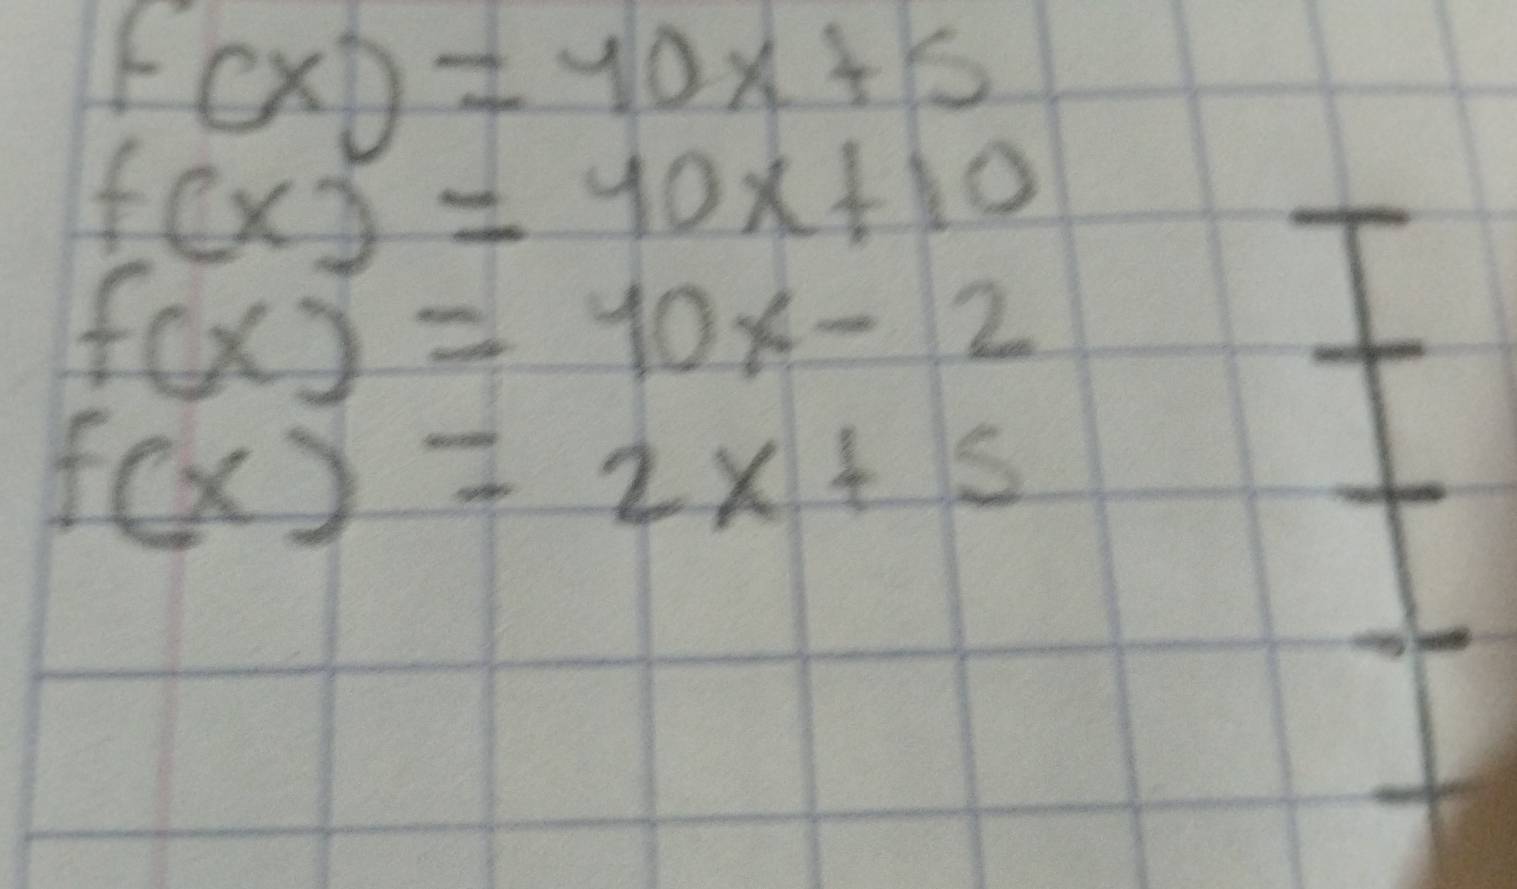 f(x) = 40x + 5
f(x) = 40x + 10
f(x) = 40x - 2
f(x) = 2x + 5